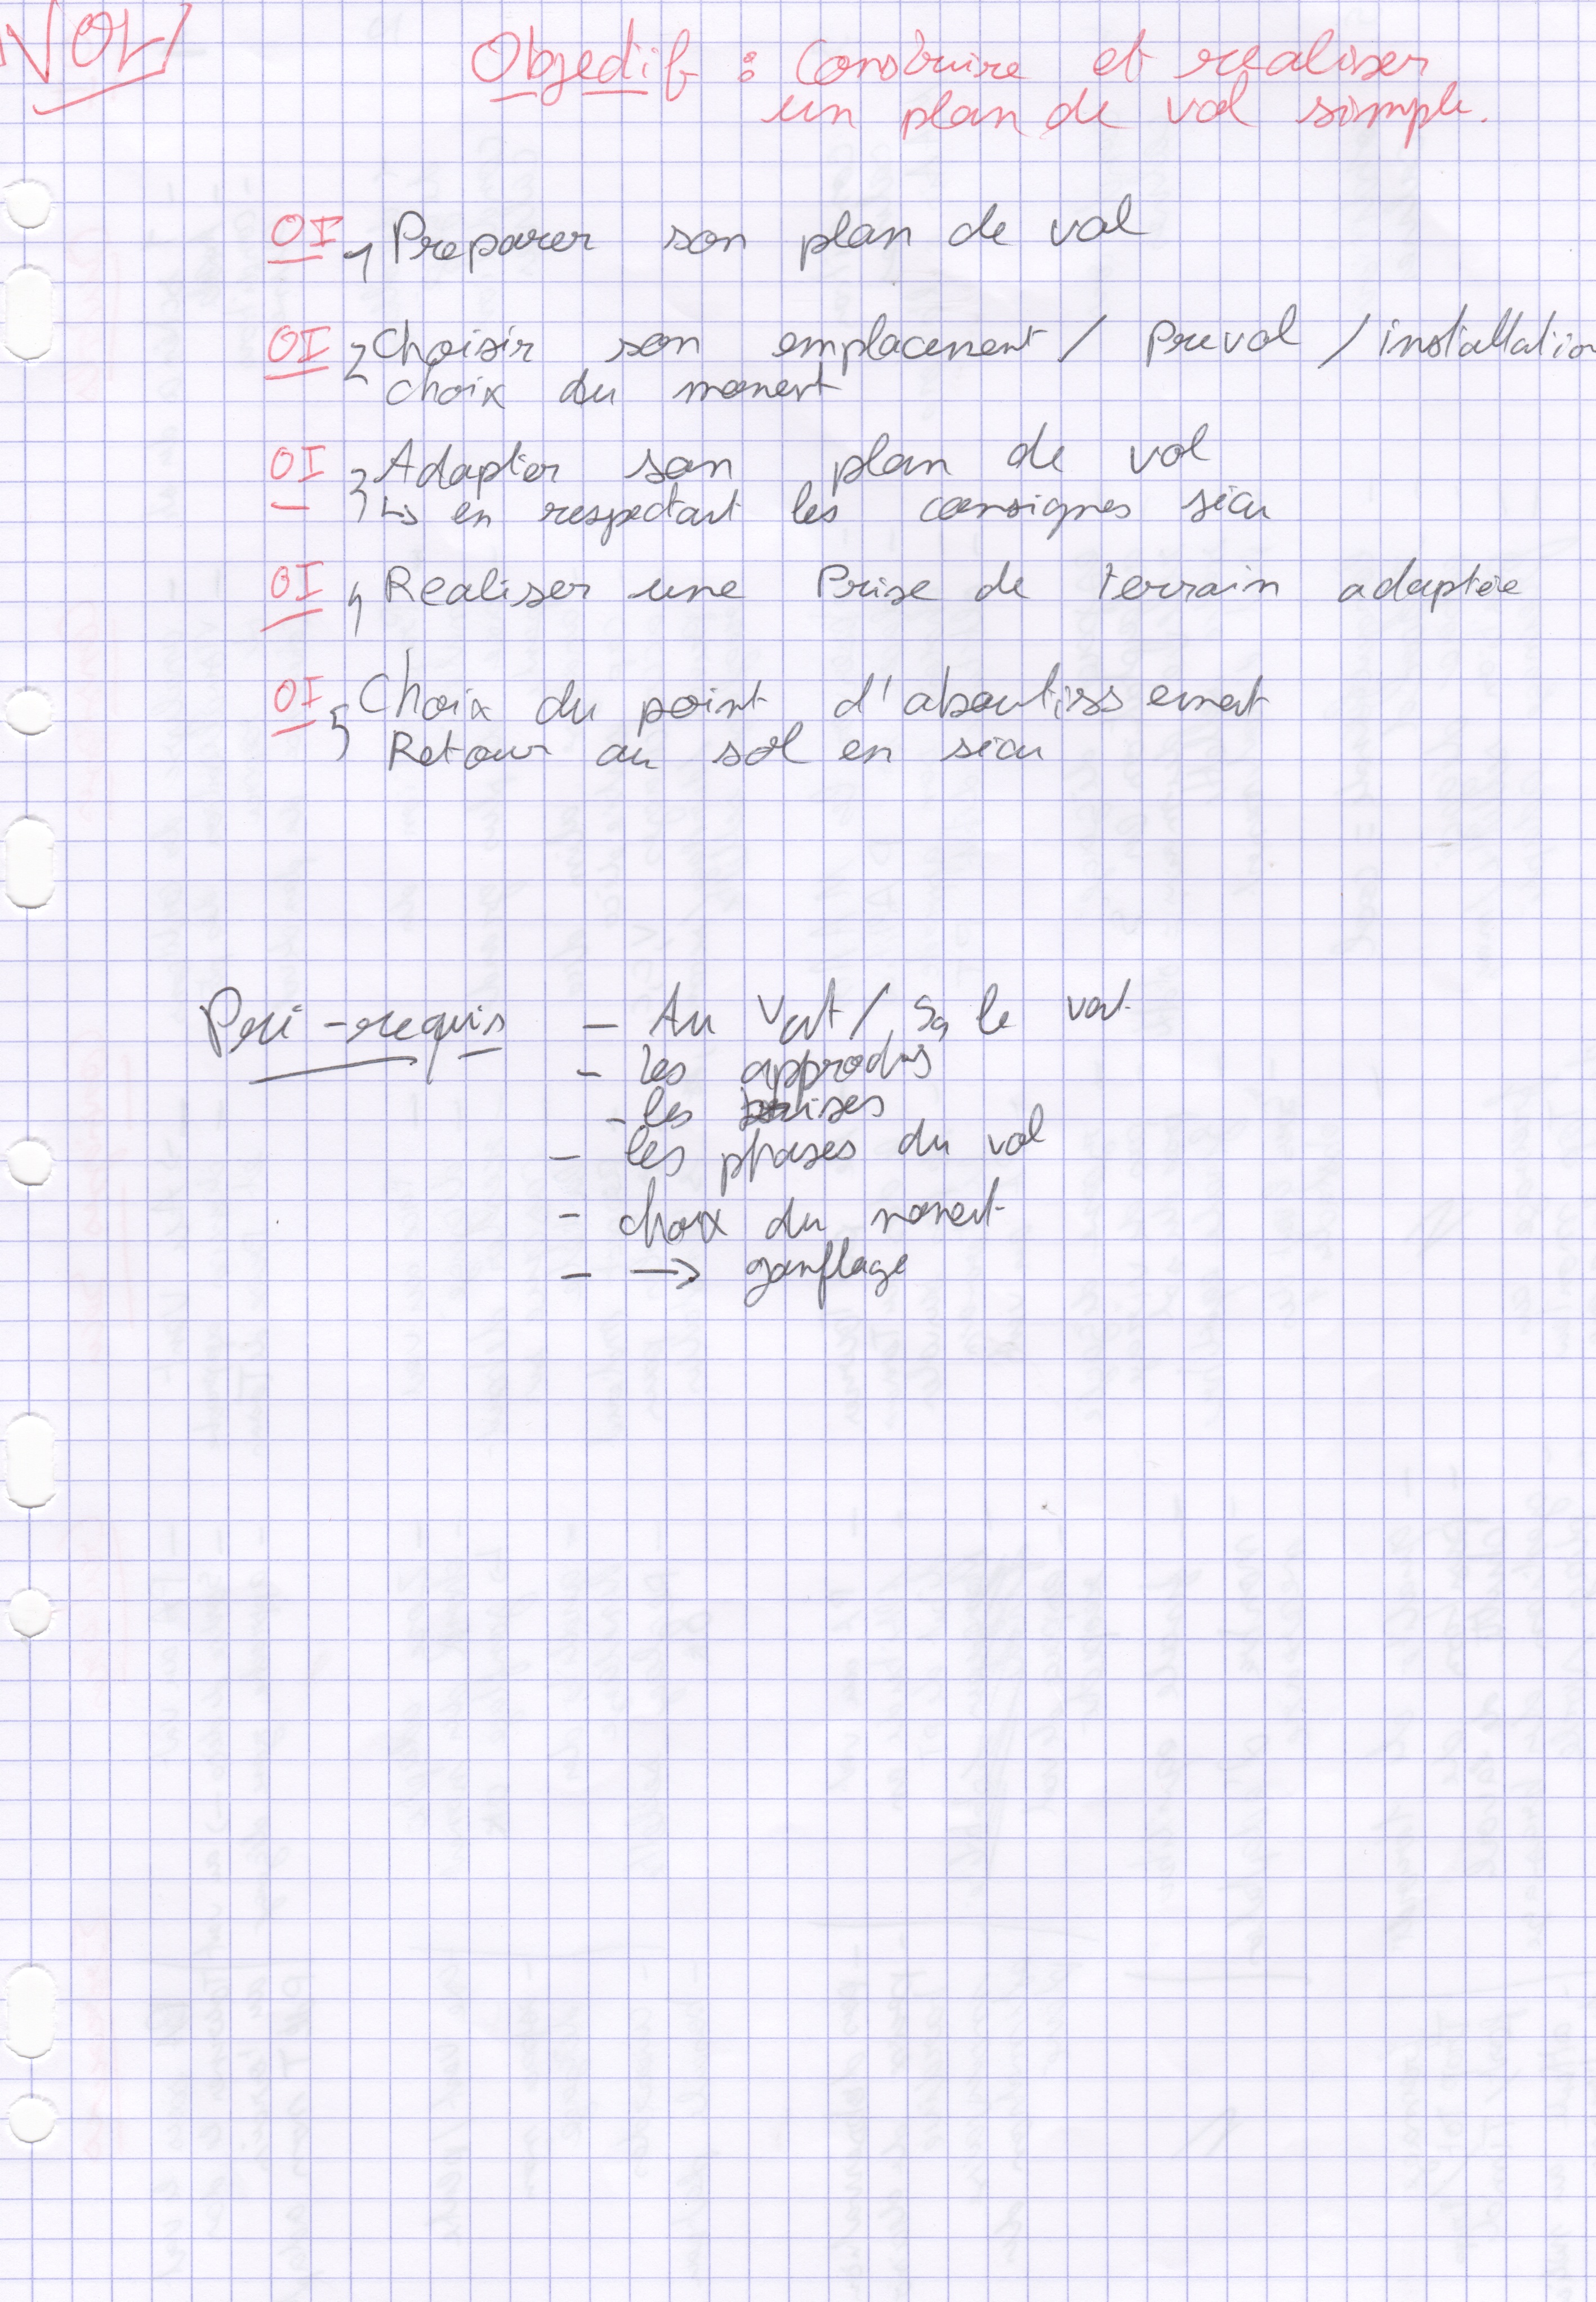 VOL
Objectif : Construire et realiser
un plan de vol simple.
OI 1 Preparer son plan de vol
OI 2 Choisir son emplacement / prevol / installation
choix du moment
OI 3 Adapter son plan de vol
↳ en respectant les consignes sécu
OI 4 Realiser une Prise de terrain adaptée
OI 5 Choix du point d'aboutissement
Retour au sol en sécu
Pré-requis - Au vent / le vent
- les approches
- les brises
- les phases du vol
- choix du moment
- → gonflage